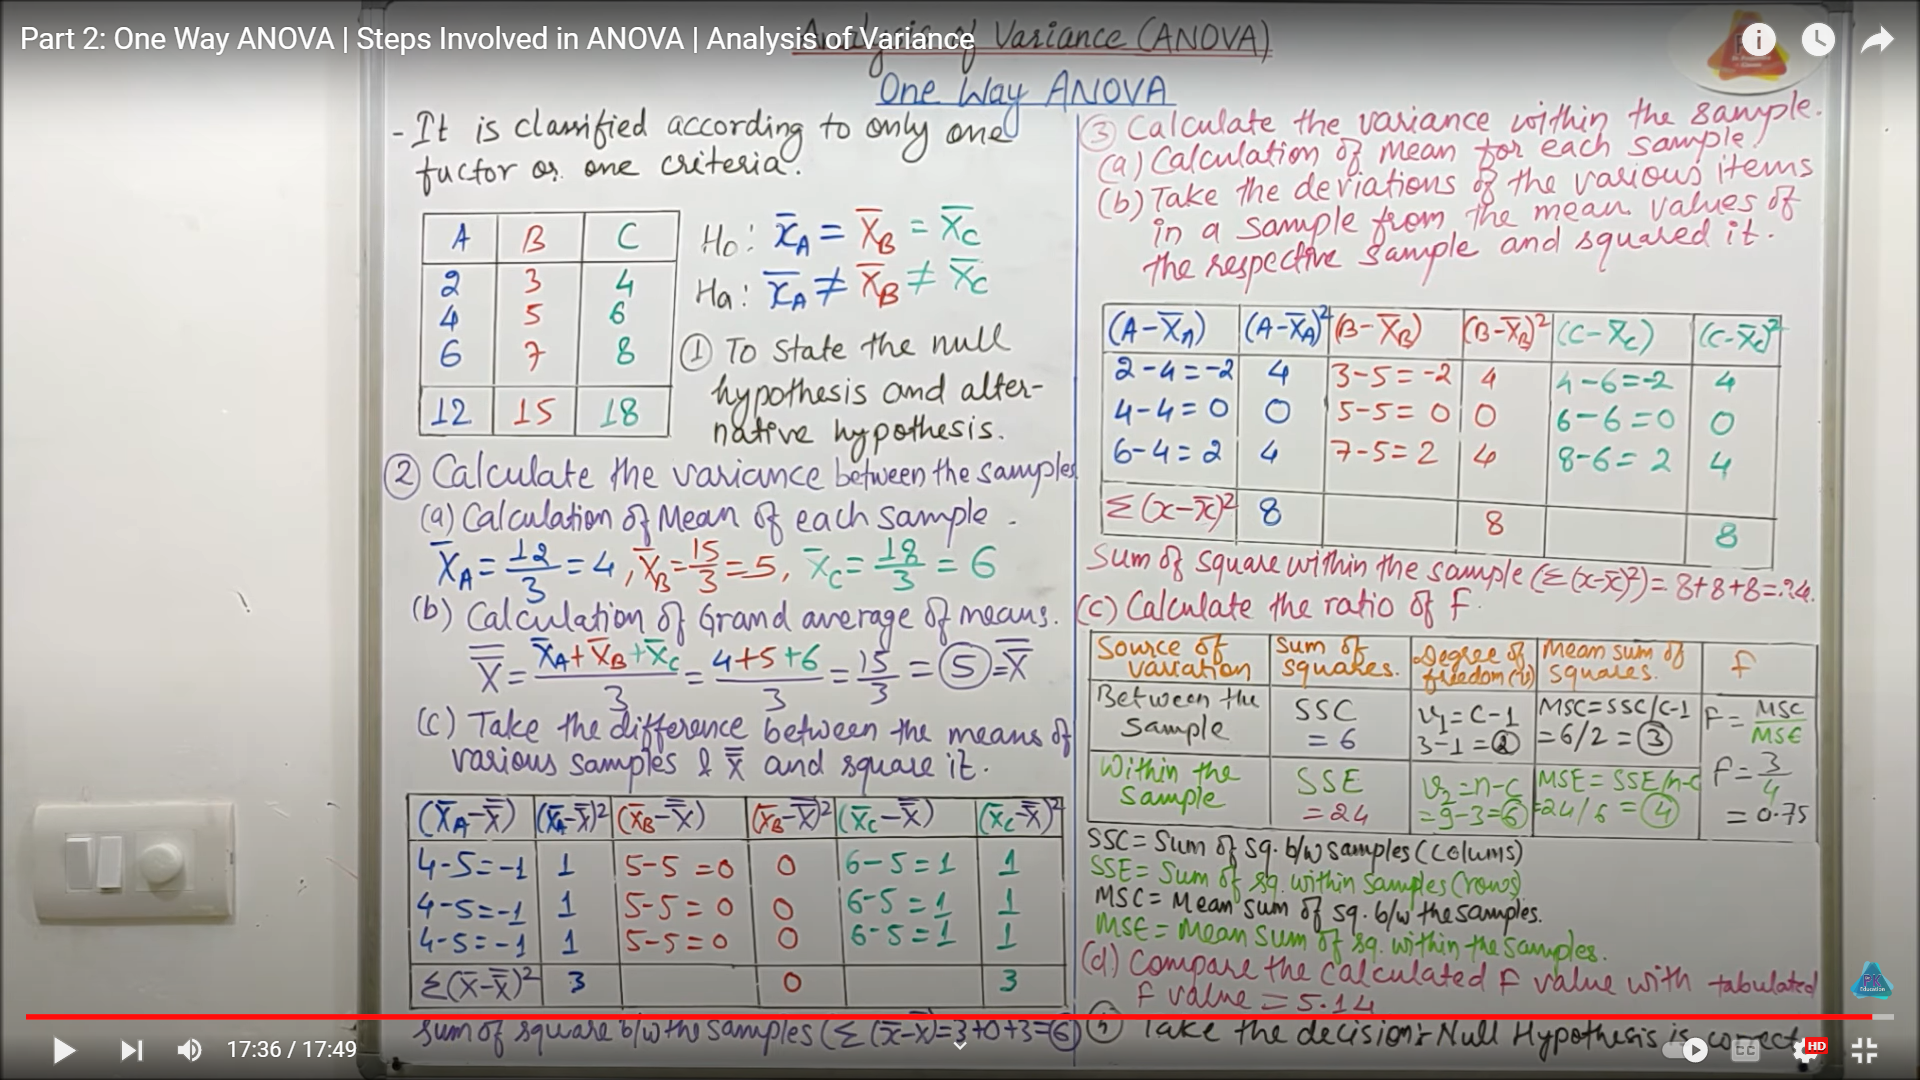 Part 2: One Way ANOVA | Steps Involved in ANOVA | Analysis of Variance
Analysis of Variance (ANOVA)
One Way ANOVA
- It is classified according to only one
factor or one criteria.
A B C
2 3 4
4 5 6
6 7 8
12 15 18
H0: X̄A = X̄B = X̄C
Ha: X̄A ≠ X̄B ≠ X̄C
① To State the null
hypothesis and alter-
native hypothesis.
② Calculate the variance between the samples
(a) Calculation of Mean of each sample.
X̄A = 12/3 = 4, X̄B = 15/3 = 5, X̄C = 18/3 = 6
(b) Calculation of Grand average of means.
X̿ = X̄A + X̄B + X̄C / 3 = 4+5+6 / 3 = 15/3 = ⑤ = X̿
(c) Take the difference between the means of
various samples & X̿ and square it.
(X̄A-X̿) (X̄A-X̿)² (X̄B-X̿) (X̄B-X̿)² (X̄C-X̿) (X̄C-X̿)²
4-5=-1 1 5-5=0 0 6-5=1 1
4-5=-1 1 5-5=0 0 6-5=1 1
4-5=-1 1 5-5=0 0 6-5=1 1
Σ(X̄-X̿)² 3 0 3
Sum of square b/w the samples (Σ(X̄-X̿)=3+0+3=⑥)
③ Calculate the variance within the sample.
(a) Calculation of mean for each sample.
(b) Take the deviations of the various items
in a sample from the mean values of
the respective sample and squared it.
(A-X̄A) (A-X̄A)² (B-X̄B) (B-X̄B)² (C-X̄C) (C-X̄C)²
2-4=-2 4 3-5=-2 4 4-6=-2 4
4-4=0 0 5-5=0 0 6-6=0 0
6-4=2 4 7-5=2 4 8-6=2 4
Σ(x-x̄)² 8 8 8
Sum of square within the sample (Σ(x-x̄)²) = 8+8+8=24.
(c) Calculate the ratio of F.
Source of variation Sum of squares. Degree of freedom(v) Mean sum of squares. F
Between the Sample SSC = 6 v1 = C-1 3-1 = ② MSC = SSC/C-1 = 6/2 = ③ F = MSC/MSE
Within the Sample SSE = 24 v2 = n-c = 9-3 = ⑥ MSE = SSE/n-c = 24/6 = ④ F = 3/4 = 0.75
SSC = Sum of sq. b/w samples (Colums)
SSE = Sum of sq. within samples (rows)
MSC = Mean sum of sq. b/w the samples.
MSE = Mean sum of sq. within the samples.
(d) Compare the calculated F value with tabulated
F value = 5.14
Take the decision:- Null Hypothesis is correct
PK
Education
17:36 / 17:49
CC
HD